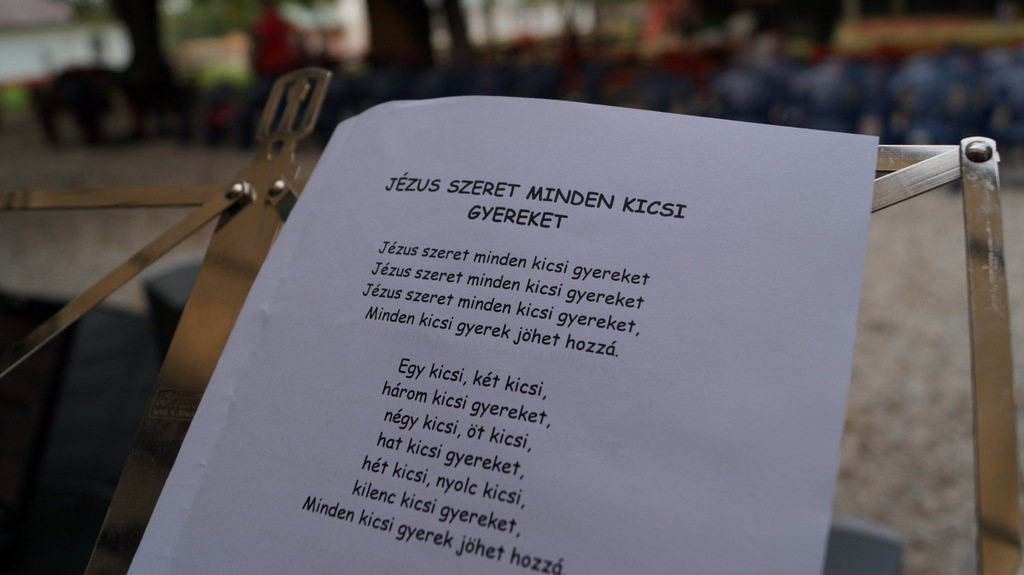 JÉZUS SZERET MINDEN KICSI
GYEREKET
Jézus szeret minden kicsi gyereket
Jézus szeret minden kicsi gyereket
Jézus szeret minden kicsi gyereket,
Minden kicsi gyerek jöhet hozzá.
Egy kicsi, két kicsi,
három kicsi gyereket,
négy kicsi, öt kicsi,
hat kicsi gyereket,
hét kicsi, nyolc kicsi,
kilenc kicsi gyereket,
Minden kicsi gyerek jöhet hozzá